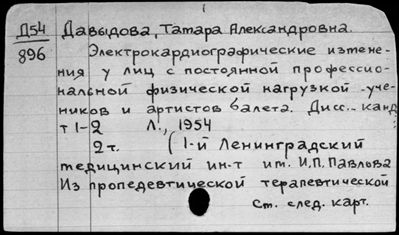 Д54 Давыдова, Тамара Александровна.
896 Электрокардиографические измене-
ния у лиц с постоянной профессио-
нальной физической нагрузкой - уче-
ников и артистов балета. Дисс.. канд
т 1-2 Л., 1954
2т. (1-й Ленинградский
медицинский ин-т им. И.П. Павлова
Из пропедевтической терапевтической
См. след. карт.